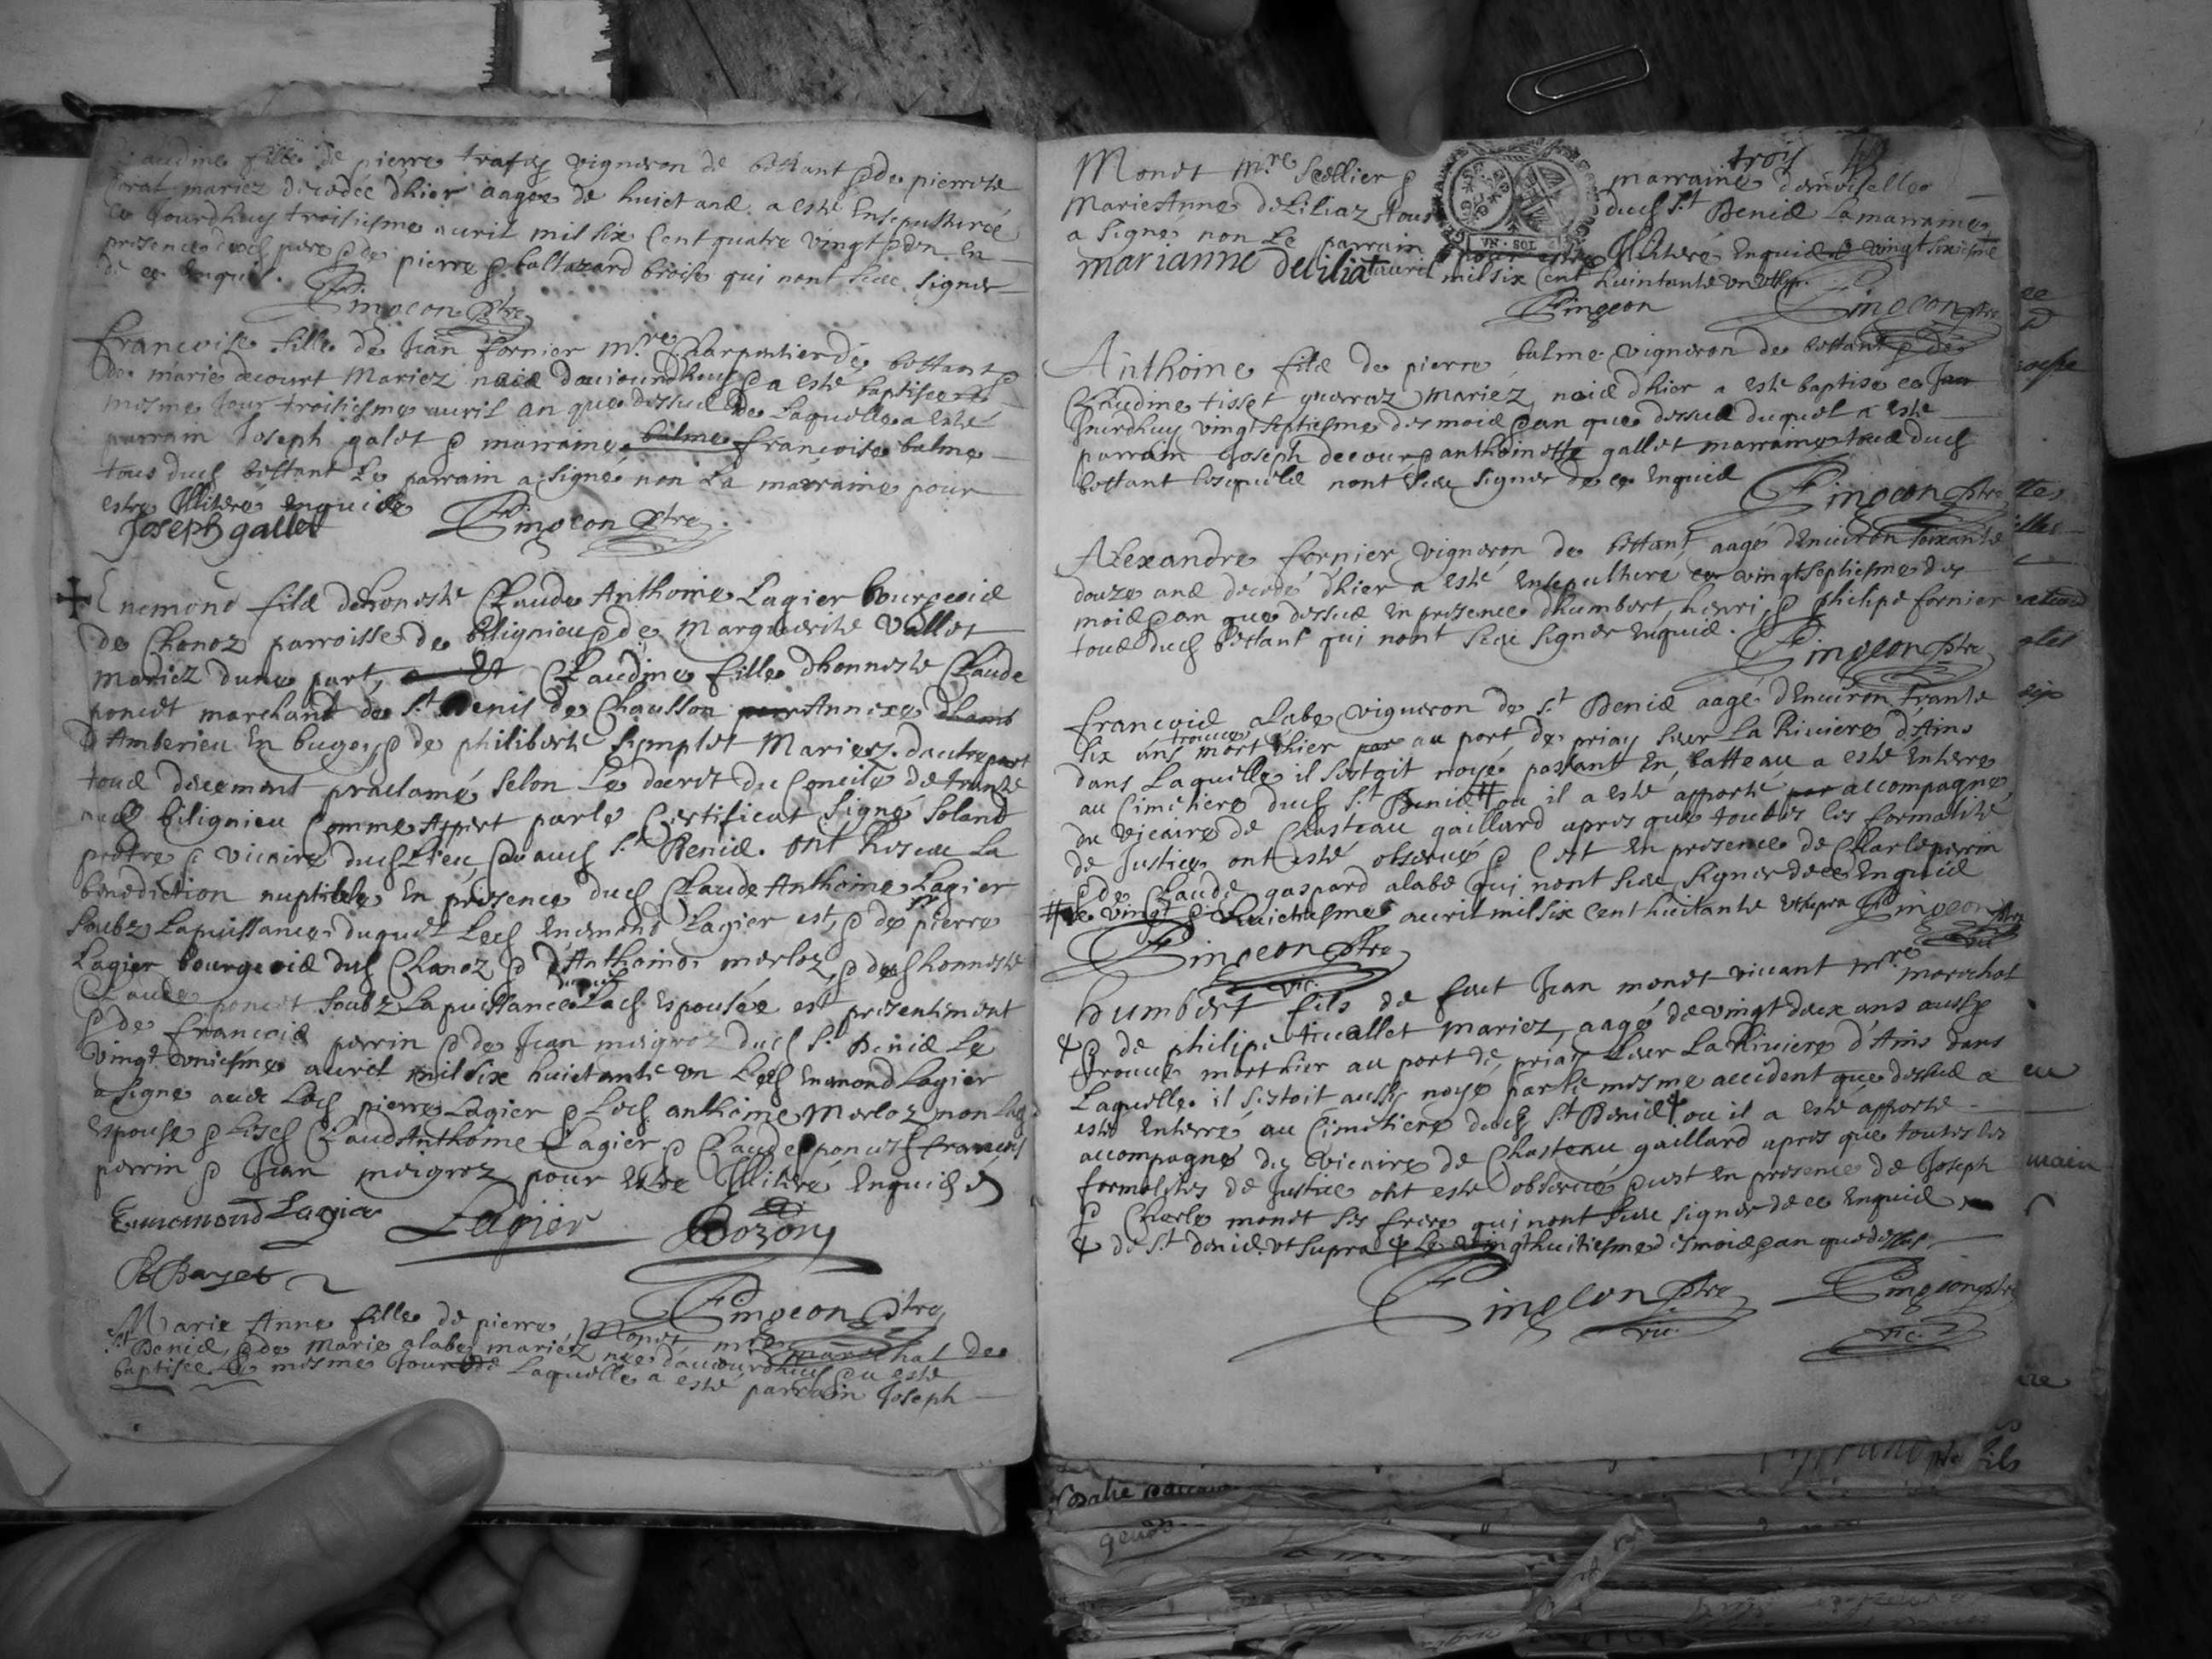 Claudine fille de pierre trafay vigneron de bettant & de pierrette
mariez decedée dhier aagee de huict ans a esté Ensepulturée
ce Jourdhuy troisiesme auril mil six Cent quatre vingt & vn en
presence dud pere & de pierre & baltazard broise qui nont sceu signer
de ce Enquis. Pingeon ptre
francoise fille de Jean fornier mre Charpentier de bettant &
de marie decourt Mariez neie daujourdhuy & a esté baptisee le
mesme Jour troisiesme auril an que dessus de Laquelle a esté
parrain Joseph galet & marraine balme francoise balme
tous dud bettant Le parrain a signé non La marraine pour
estre Illiteré enquis
Joseph gallet Pingeon ptre
Enemond fils dehoneste Claude Anthoine Lagier bourgeois
de Chanoz parroisse de bilignieu & de Marguerite Vallet
Mariez dune part, Et Claudine fille dhonneste Claude
poncet marchand de St Denis de Chausson Annexe
D'Amberieu En bugey & de philiberte symplet Mariez dautre part
tous deuement proclamé selon Le decret du Concile de trente
aud bilignieu Comme Appert parle Certificat signé Soland
pretre & vicaire dud Lieu & aud St Denis. ont Receu La
benediction nuptiale En presence dud Claude Anthoine Lagier
soubz Lapuissance duquel Led Enemond Lagier est, & de sr pierre
Lagier bourgeois dud Chanoz & d'Anthoine merloz, & dud honneste
Claude poncet soubz La puissance duquel Lad Espousée est presentement
& de francois perrin & de Jean meigroz dud St Denis Le
vingt vniesme auril mil six huictante vn Led Enemond Lagier
a signé auec Led pierre Lagier & Led anthoine Merloz non Lad
Espouse & Lesd Claud Anthoine Lagier & Claude poncet & francois
perrin & Jean meigroz pour Estre Illiteré Enquis
Ennemond Lagier Lagier Bozon
Pingeon ptre
Marie Anne fille de pierre Monet mre marechal de
St Denis, & de Marie alabe mariez née daujourdhuy & a esté
baptisee Le mesme Jour de Laquelle a esté parrain Joseph
trois
Monet mre Scellier & marraine demoiselle
MarieAnne deLiliaz tous dud St Denis La marraine
a signe non Le parrain pour estre Illiteré Enquis ce vingt sixiesme
VN · SOL
marianne deliliat auril mil six Cent huictante vn vtsup.
Pingeon Pingeon ptre
Anthoine fils de pierre balme vigneron de bettant & de
Claudine tisset querraz mariez, neié dhier a esté baptise ce Jour
Jourdhuy vingt septiesme des mois & an que dessus duquel a esté
parrain Joseph decour & anthoinette gallet marraine tous dud
bettant lesquels nont sceu signer de ce Enquis
Pingeon ptre
Alexandre fornier vigneron de bettant aagé dEnuiron soixante
douze ans decedé dhier a esté Ensepulturé ce vingtseptiesme des
mois & an que dessus En presence dhumbert, henri, & philipe fornier
tous dud bettant qui nont sceu signer Enquis.
Pingeon ptre
francois alabe vigneron de St Denis aagé dEnuiron trante
six ans trouué mort hier au port de priay sur La Riuiere d'Ains
dans Laquelle il sestoit noyé passant En batteau a esté Enterré
au Cimetiere dud St Denis # ou il a esté apporté accompagné
du vicaire de Chasteau gaillard apres que toutes les formalité
de Justice ont esté obserué & Cest En presence de Charle perrin
& de Claude gaspard alabe qui nont sceu signer de ce Enquis
# Le vingt & huictiesme auril mil six Cent huictante vtsupra Pingeon ptre
Pingeon ptre vic.
humbert fils de feu Jean monet viuant mre marechal
& de philipe tiuallet mariez, aagé de vingt deux ans aussy
trouué mort hier au port de priay sur La Riuiere d'Ains dans
Laquelle il sestoit aussy noyé par Le mesme accident que dessus a
esté Enterré au Cimetiere dud St Denis ou il a esté apporté
accompagné du vicaire de Chasteau gaillard apres que toutes les
formalites de Justice ont esté obserué & cest En presence de Joseph
& Charle monet ses frere qui nont sceu signer de ce Enquis
de St denis vt supra Le vingt huitiesme des mois & an que dessus
Pingeon ptre vic. Pingeon ptre vic.